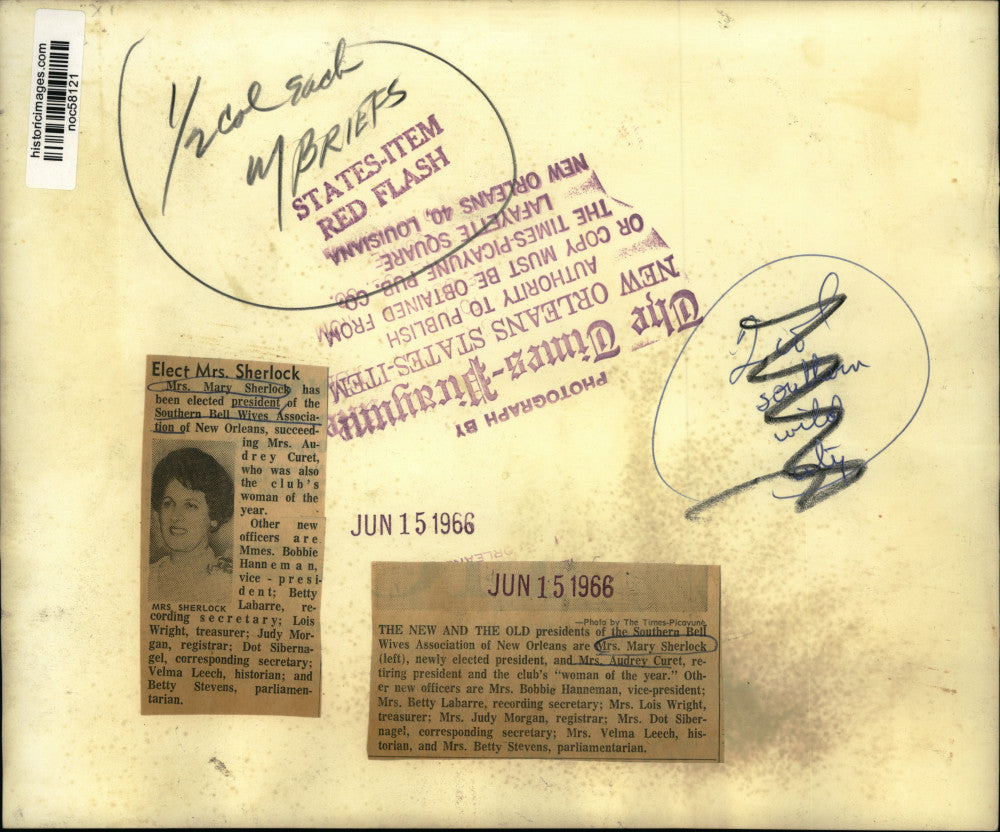 historicimages.com
noc58121
1/2 col each
W/BRIEFS
STATES-ITEM
RED FLASH
PHOTOGRAPH BY
The Times-Picayune
NEW ORLEANS STATES-ITEM
AUTHORITY TO PUBLISH
OR COPY MUST BE OBTAINED FROM
THE TIMES-PICAYUNE PUB. CO.
LAFAYETTE SQUARE
NEW ORLEANS 40, LOUISIANA
southern
wild
Elect Mrs. Sherlock
Mrs. Mary Sherlock has
been elected president of the
Southern Bell Wives Associa-
tion of New Orleans, succeed-
ing Mrs. Au-
drey Curet,
who was also
the club's
woman of the
year.
Other new
officers are
Mmes. Bobbie
Hanneman,
vice-presi-
dent; Betty
Labarre, re-
MRS. SHERLOCK
cording secretary; Lois
Wright, treasurer; Judy Mor-
gan, registrar; Dot Siberna-
gel, corresponding secretary;
Velma Leech, historian; and
Betty Stevens, parliamen-
tarian.
JUN 15 1966
ORLEANS
JUN 15 1966
—Photo by The Times-Picayune.
THE NEW AND THE OLD presidents of the Southern Bell
Wives Association of New Orleans are Mrs. Mary Sherlock
(left), newly elected president, and Mrs. Audrey Curet, re-
tiring president and the club's "woman of the year." Oth-
er new officers are Mrs. Bobbie Hanneman, vice-president;
Mrs. Betty Labarre, recording secretary; Mrs. Lois Wright,
treasurer; Mrs. Judy Morgan, registrar; Mrs. Dot Siber-
nagel, corresponding secretary; Mrs. Velma Leech, his-
torian, and Mrs. Betty Stevens, parliamentarian.